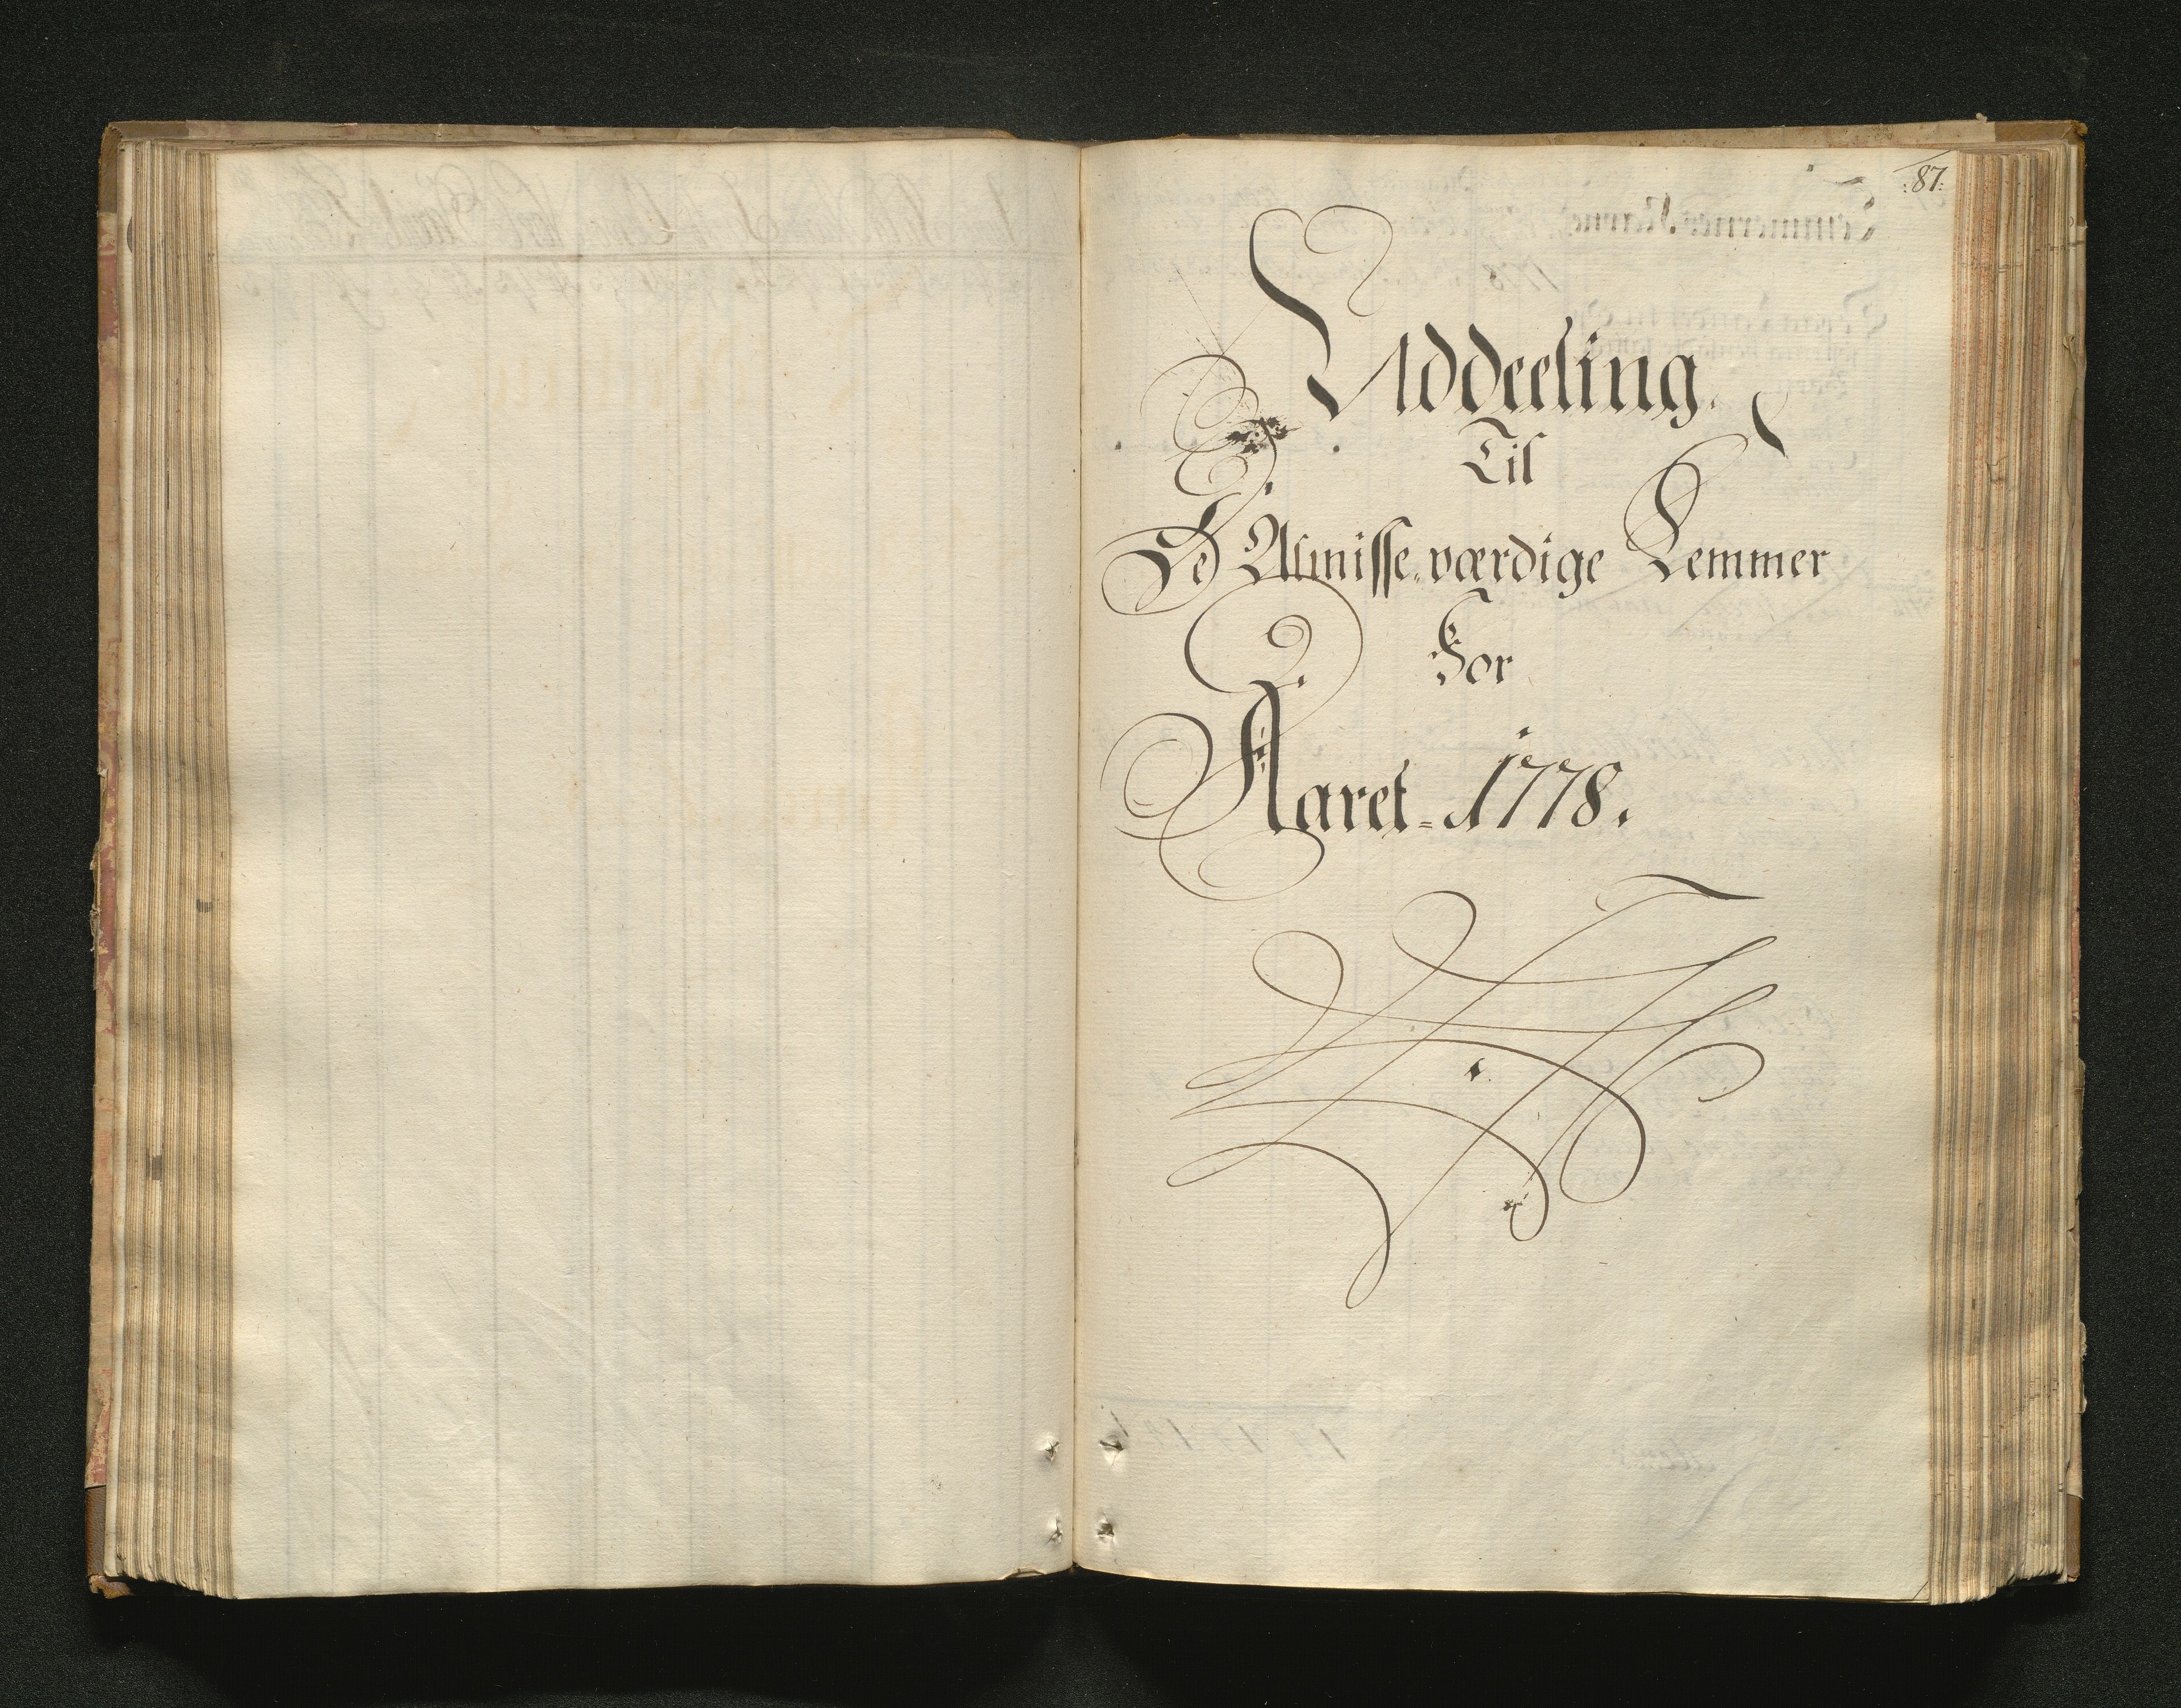 :87:
Uddeeling.
Til
De Almisse-værdige Lemmer
For
Aaret-1778.